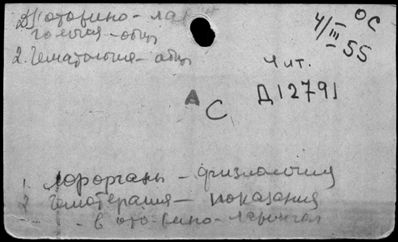 2) Ото-рино-лар
гология-общ
2. Гематология-общ
4/III-55
ОС
Чит.
Д12791
А С
1. Лорорганы - физиология
2 Гемотерапия - показания
- в ото-рино-ларингол